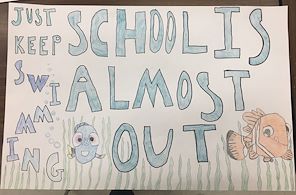 JUST
KEEP
SWIMMING
SCHOOL IS
ALMOST
OUT